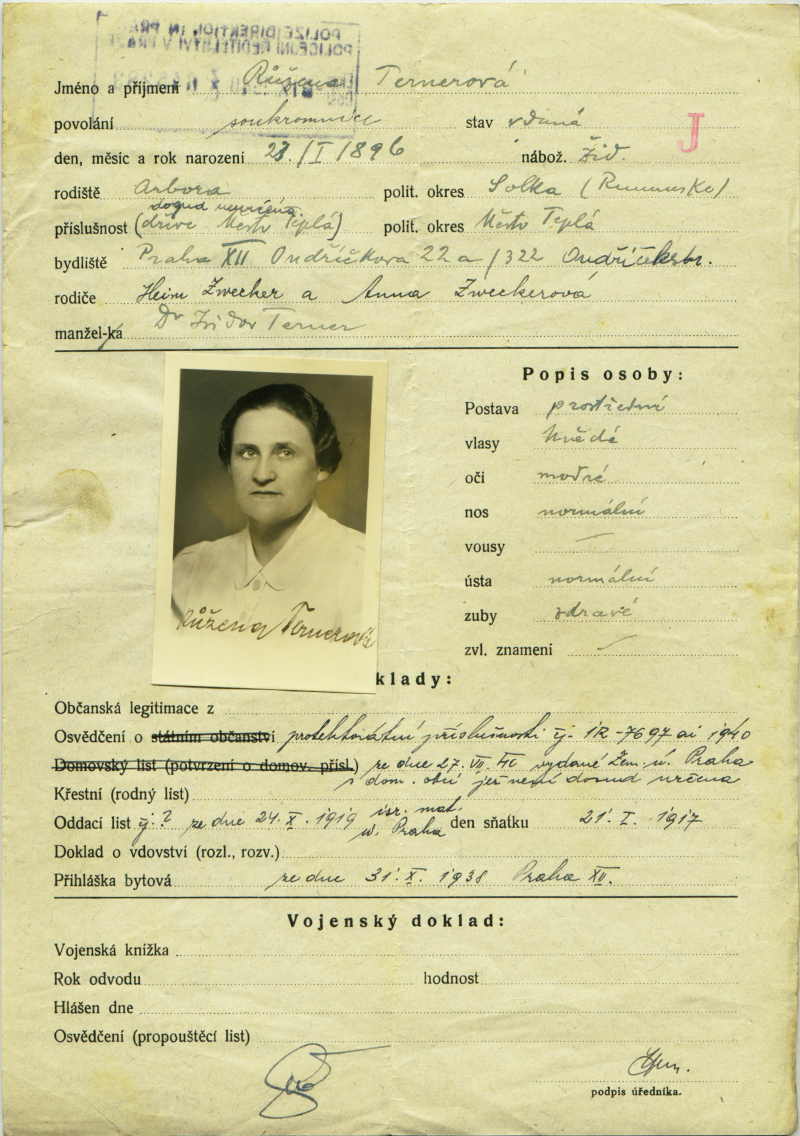 POLIZEIDIREKTION IN PRAG
POLICEJNÍ ŘEDITELSTVÍ V PRAZE
Jméno a příjmení Růžena Ternerová
povolání soukromnice stav vdaná J
den, měsíc a rok narození 23/I/1896 nábož. žid.
rodiště Arbora polit. okres Solka (Rumunsko)
dosud neurčena
příslušnost (dříve Město Teplá) polit. okres Město Teplá
bydliště Praha XII Ondříčkova 22a/322 Ondříčekstr.
rodiče Heim Zwecker a Anna Zweckerová
manžel-ka Dr Isidor Terner
Popis osoby:
Postava prostřední
vlasy hnědé
oči modré
nos normální
vousy —
ústa normální
zuby zdravé
zvl. znamení —
Růžena Ternerová
klady:
Občanská legitimace z
Osvědčení o státním občanství protektorátní příslušnosti čj. IR-7697 ai 1940
Domovský list (potvrzení o domov. přísl.) ze dne 27. VII. 40 vydané Zem. ú. Praha
s dom. obcí jež není dosud určena
Křestní (rodný list)
Oddací list čj. ? ze dne 24. X. 1919 isr. mat. ú. Praha den sňatku 21. I. 1917
Doklad o vdovství (rozl., rozv.)
Přihláška bytová ze dne 31. X. 1938 Praha XII.
Vojenský doklad:
Vojenská knížka
Rok odvodu hodnost
Hlášen dne
Osvědčení (propouštěcí list)
podpis úředníka.